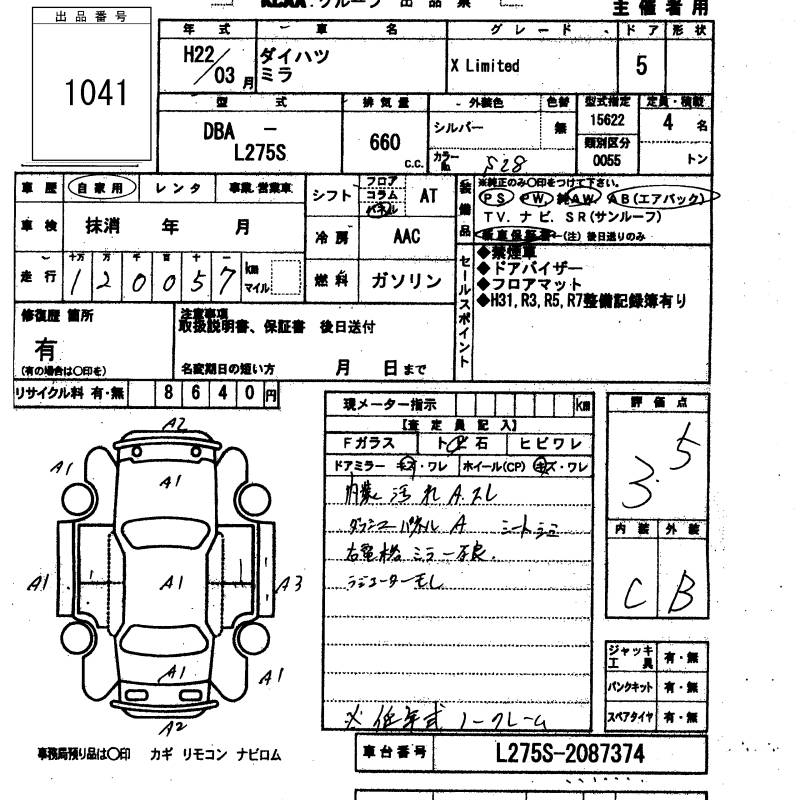 出品番号
1041
KCAA.グループ 出品票
主催者用
年式 車名 グレード ドア 形状
H22/03月 ダイハツ ミラ X Limited 5
型式 排気量 外装色 色替 型式指定 定員・積載
DBA - L275S 660 c.c. シルバー 無 15622 4名
カラーNo. S28 類別区分 0055 トン
車歴 自家用 レンタ 事業・営業車
シフト フロア コラム パネル AT
車検 抹消 年 月
冷房 AAC
走行 十万 万 千 百 十 一
1 2 0 0 5 7 km マイル
燃料 ガソリン
装備品
※純正のみ〇印をつけて下さい。
PS PW 純AW AB(エアバック)
TV. ナビ. SR(サンルーフ)
新車保証書-(注) 後日送りのみ
セールスポイント
◆禁煙車
◆ドアバイザー
◆フロアマット
◆H31,R3,R5,R7整備記録簿有り
修復歴 箇所
有
(有の場合は〇印を)
注意事項
取扱説明書、保証書 後日送付
名変期日の短い方 月 日まで
リサイクル料 有・無 8640円
現メーター指示 km
【査定員記入】
Fガラス トビ石 ヒビワレ
ドアミラー キズ・ワレ ホイール(CP) キズ・ワレ
内装 汚れ A.スレ
ダッシュパネル A シート
右電格ミラー不良.
ラジエーター
※ 低年式 ノークレーム
評価点
3.5
内装 外装
C B
ジャッキ 工具 有・無
パンクキット 有・無
スペアタイヤ 有・無
A2
A1
A1
A1
A1
A1
A3
A1
A1
A2
事務局預り品は〇印 カギ リモコン ナビロム
車台番号 L275S-2087374